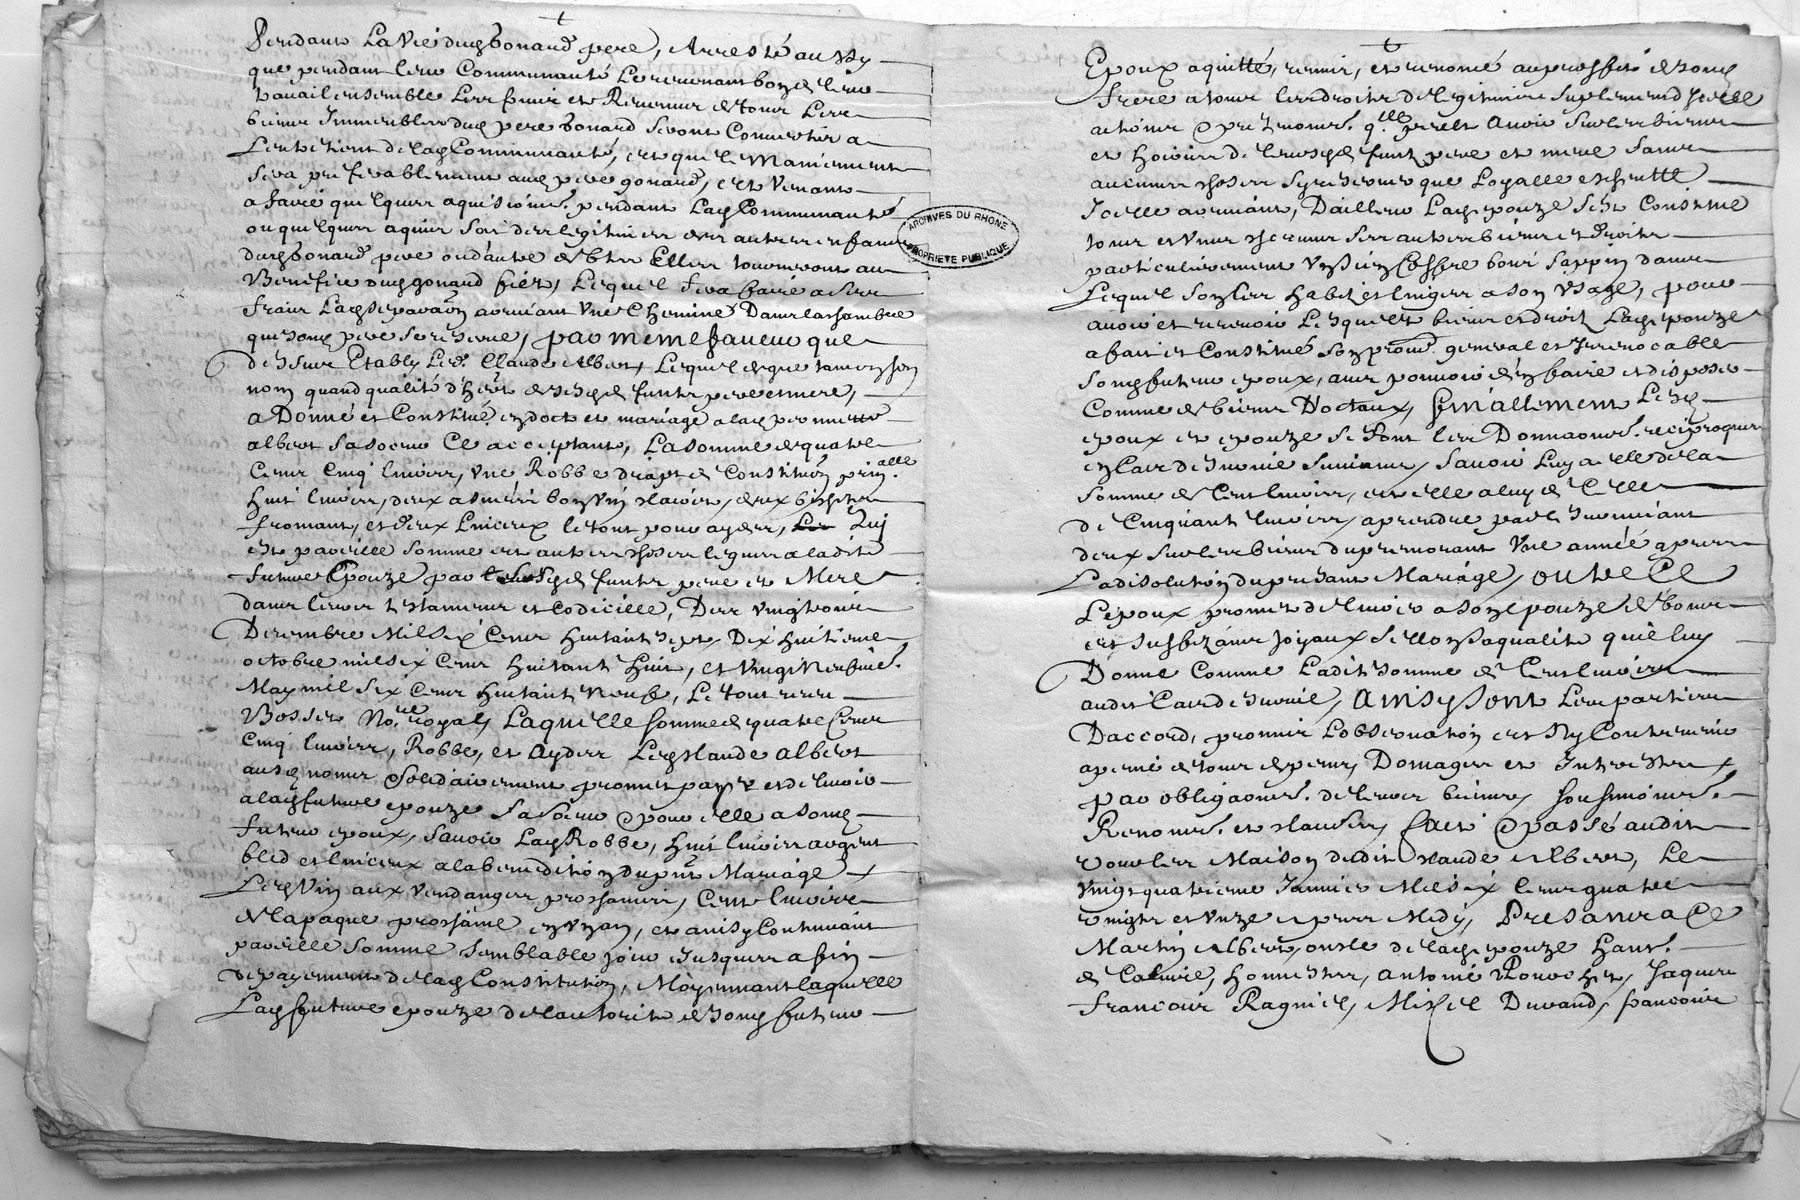 Pendant La Vie dud gonard pere, Arresté aussy
que pendant leur Communauté Le revenant bon de leur
travail ensemble Leur sera et Revenus de tous Leurs
biens Immeubles dud pere gonard seront Convertir a
Lentretient de lad Communauté, et que le Maniement
sera preferablement aud pere gonard, et Venant
a faire quelques aquisions pendant Lad Communauté
ou quelques aquis soit des legitimes des autres enfans
dud gonard pere ou d'autre debtes Elles tourneront au
Benefice dud gonard fils, Lequel fera faire a ses
frais Lad separaon avenant Une Chemine Dans la chambre
que sond pere se reserve, par meme faveur que
dessus Etably Led. Claude Albert, Lequel de que tant en son
nom quand qualité d'hert de sesd. funts pere et mere,
a Donné et Constitué en doct et mariage a lad pernette
albert sa soeur Ce acceptant, La somme de quatre
Cens Cinq livres, Une Robbe drapt de Constituon prin.alle
huit livres, deux asnées bon vin clairet, deux bichets
fromant, et deux linceux le tout pour ayder, Qui
est pareille somme et autres choses leguées a ladite
future Epouze par leursd. funts pere et Mere
dans leurs testaments et Codicille, Des Vingt
Decembre Mil six Cens huitant sept, Dix huitieme
octobre mil six Cens huitant huit, et Vingt neufvie.
May mil six Cens huitant neuf, Le tout receu
Bosset No.re royal, Laquelle somme de quatre Cens
Cinq livres, Robbe, et ayder Led Claude Albert
ausd. noms solidairement promet payer et delivrer
a lad future epouze sa soeur & pour elle a sond
futur epoux, savoir Lad Robbe, huit livres argent
bled et linceux a la benediction du pnt Mariage
Led Vin aux Vendanges prochaines, Cent livres
de la paque prochaine en un an, et ainsy Continuant
pareille somme semblable jour Jusques a fin
de payement de lad Constitution, Moyennant laquelle
Lad future epouze de lautorité de sond futur
Epoux a quitté, remis, et renoncé au proffit de sond
frere a tous les droits de legitime suplement d'icelle
actions & pretentions. q.lle peult avoir sur les biens
et hoiries de leursd. funts pere et mere sans
aucunes choses sy reserver que Loyalle eschutte
Icelle avenant, D'ailleur Lad epouze sest Constitué
tous et uns chescuns ses autres biens et droits
particulierement Un sien Coffre bois sappin dans
Lequel son ses habits et linges a son Usage, pour
avoir et recevoir Lesquels biens et droits Lad epouze
a fait et Constitué son procur. general et Irrevocable
sond futur epoux, avec pouvoir d'en faire et disposer
Comme de biens Doctaux, finallement Lesd
epoux et epouze se font les Donnaons. reciproques
en Cas de survie suivant, savoir Luy a elle de la
somme de Cent livres, et elle a luy de Celle
de Cinquant livres, a prendre par le survivant
deux sur les biens du premorant Une année apres
La disolution du presant Mariage, outre Ce
Lepoux promet de livrer a son epouze de bons
et suffizans joyaux sellon sa qualité quil luy
Donne Comme Ladit somme de Cent livres
audit Cas de survie, ainsy sont Les parties
D'accord, promis L'observation et Ny Contrevenir
a peine de tous despens, Domages et Interests
par obligaons. de leurs biens, soubmions.
Renons. et clauses, fait & passé audit
Maison dudit Claude Albert, Le
Vingt quatrieme Janvier Mil six Cens quatre
Vingts et Unze apres Midy, Presants a Ce
Martin Albert, oncle de lad epouze hant.
de Caluire, honnestes, Antoine, Jaques
francois Ragniel, Michel Durand, francois
ARCHIVES DU RHONE
PROPRIETE PUBLIQUE